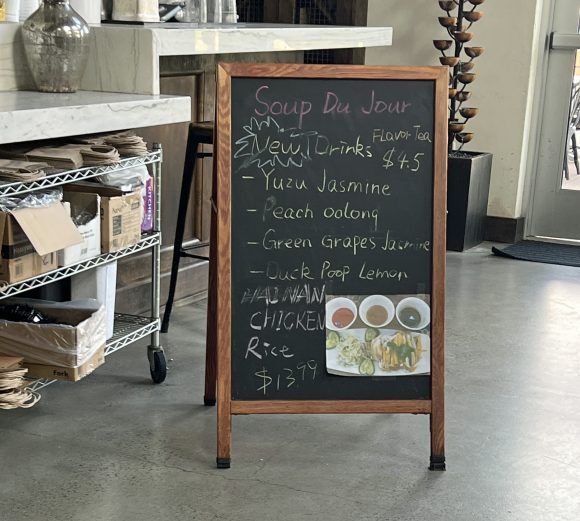 Soup Du Jour
New! Drinks Flavor Tea $4.5
- Yuzu Jasmine
- Peach oolong
- Green Grapes Jasmine
- Duck Poop Lemon
HAINAN
CHICKEN
Rice
$13.99
KITCHEN
Fork